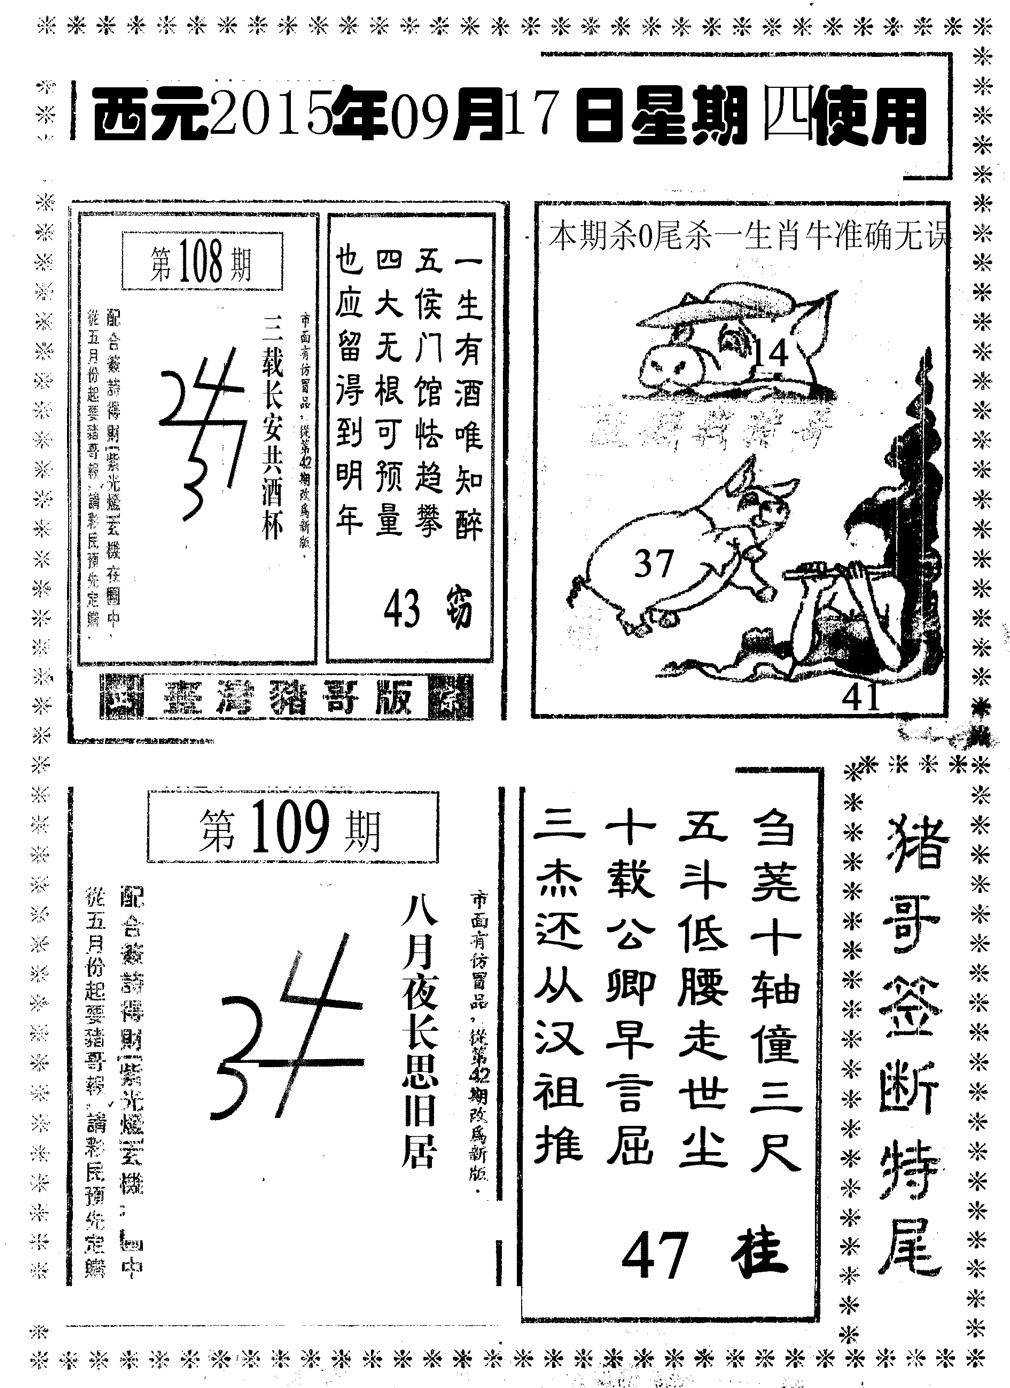 西元2015年09月17日星期四使用
第108期
市面有仿冒品,從第42期改爲新版.
三载长安共酒杯
配合簽詩得財(紫光燈)玄機在圖中.
從五月份起要豬哥報,請彩民預先定購.
一生有酒唯知醉
五侯门馆怯趋攀
四大无根可预量
也应留得到明年
43 窃
臺灣豬哥版
本期杀0尾杀一生肖牛准确无误
14
37
41
第109期
市面有仿冒品,從第42期改爲新版.
八月夜长思旧居
配合簽詩得財(紫光燈)玄機 中
從五月份起要豬哥報,請彩民預先定購
刍荛十轴僮三尺
五斗低腰走世尘
十载公卿早言屈
三杰还从汉祖推
47 桂
猪哥签断特尾